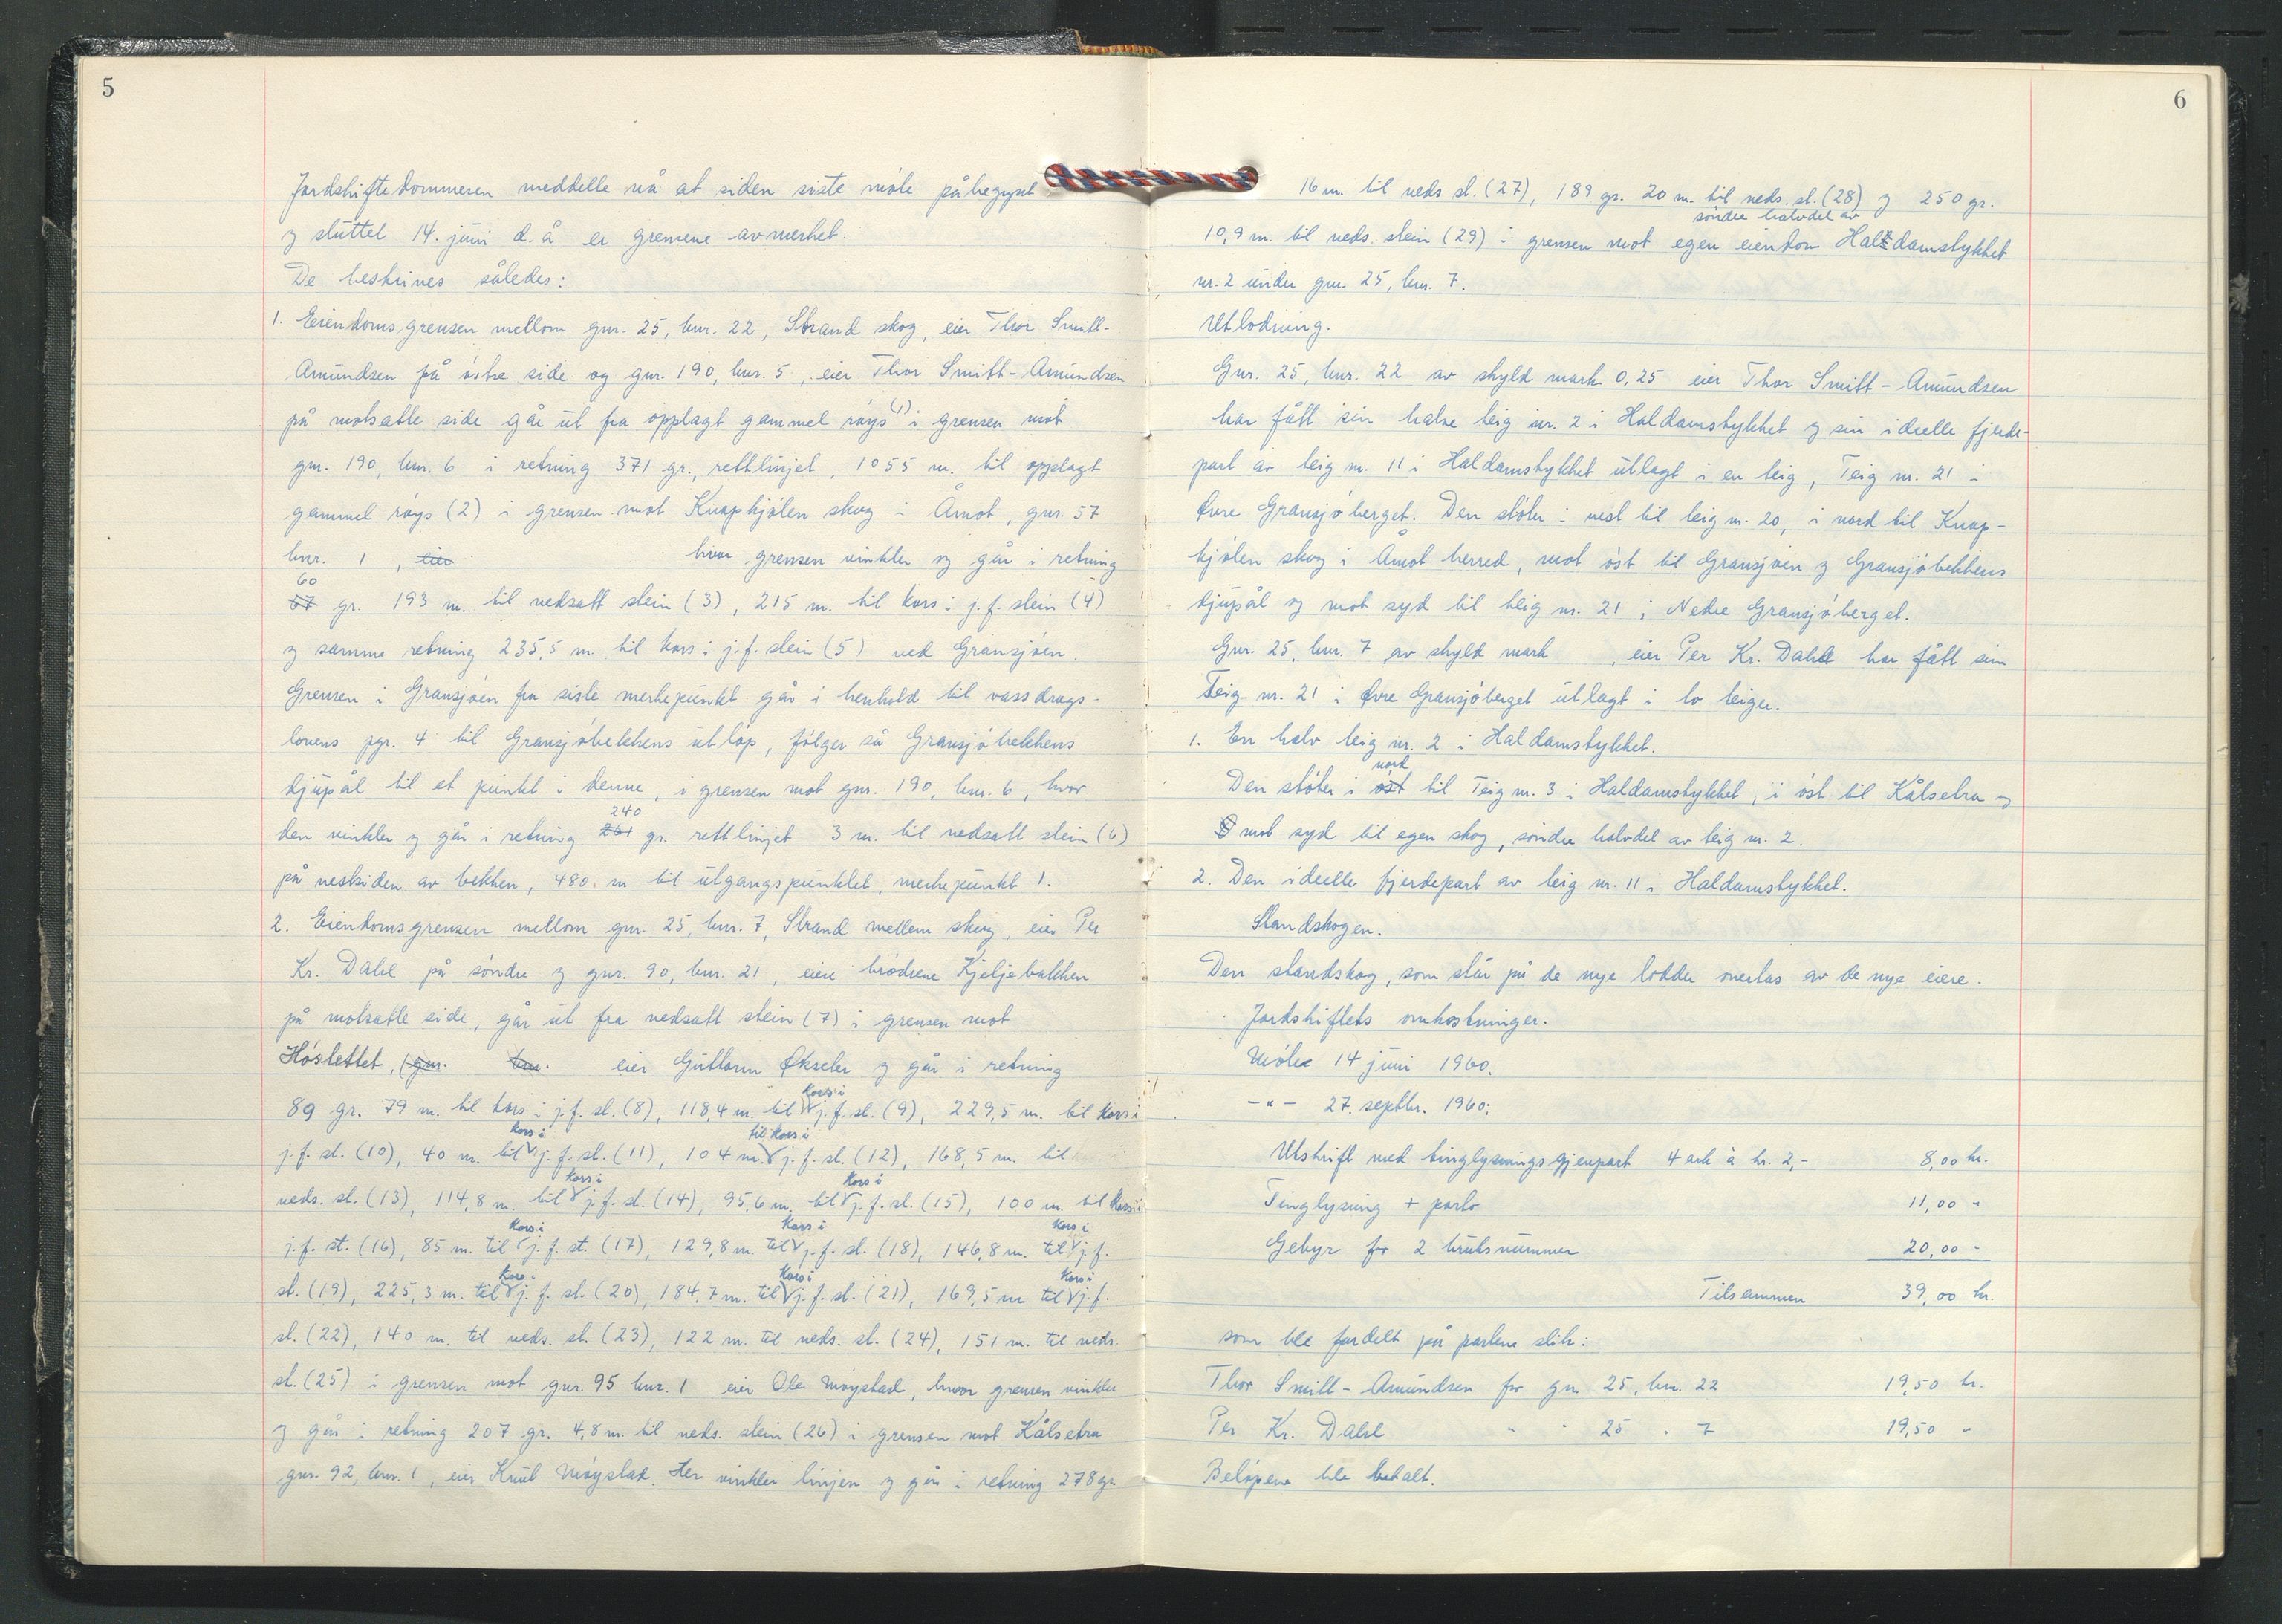 5
Jordskiftedommeren meddelte nå at siden siste møte påbegynt
og sluttet 14. juni d. å. er grensene avmerket.
De beskrives således:
1. Eiendomsgrensen mellom gnr. 25, bnr. 22, Strand skog, eier Thor Smitt-
Amundsen på østre side og gnr. 190, bnr. 5, eier Thor Smitt-Amundsen
på motsatte side går ut fra opplagt gammel røys (1) i grensen mot
gnr. 190, bnr. 6 i retning 371 gr., rettlinjet, 1055 m. til opplagt
gammel røys (2) i grensen mot Knapkjølen skog i Åmot, gnr. 57
bnr. 1, eier hvor grensen vinkler og går i retning
60
67 gr. 193 m. til nedsatt stein (3), 215 m. til kors i j.f. stein (4)
og samme retning 235,5 m. til kors i j.f. stein (5) ved Gransjøen.
Grensen i Gransjøen fra siste merkepunkt går i henhold til vassdrags-
lovens pgr. 4 til Gransjøbekkens utløp, følger så Gransjøbekkens
djupål til et punkt i denne, i grensen mot gnr. 190, bnr. 6, hvor
240
den vinkler og går i retning 261 gr. rettlinjet 3 m. til nedsatt stein (6)
på vestsiden av bekken, 480. m til utgangspunktet, merkepunkt 1.
2. Eiendomsgrensen mellom gnr. 25, bnr. 7, Strand mellem skog, eier Per
Kr. Dahl på søndre og gnr. 90, bnr. 21, eiere brødrene Kjeljebakken
på motsatte side, går ut fra nedsatt stein (7) i grensen mot
Høslettet, (gnr. bnr. eier Guttorm Økseter og går i retning
kors i
89 gr. 79 m. til kors i j.f. st. (8), 118,4 m. til j.f. st. (9), 229,5 m. til kors i
kors i til kors i
j.f. st. (10), 40 m. til j.f. st. (11), 104 m. j.f. st. (12), 168,5 m. til
kors i kors i
neds. st. (13), 114,8 m. til j.f. st. (14), 95,6 m. til j.f. st. (15), 100 m. til kors i
kors i kors i kors i
j.f. st. (16), 85 m. til j.f. st. (17), 129,8 m. til j.f. st. (18), 146,8 m. til j.f.
kors i kors i kors i
st. (19), 225,3 m. til j.f. st. (20), 184,7 m. til j.f. st. (21), 169,5 m til j.f.
st. (22), 140 m. til neds. st. (23), 122 m. til neds. st. (24), 151 m. til neds.
st. (25) i grensen mot gnr. 95 bnr. 1 eier Ole Møystad, hvor grensen vinkler
og går i retning 207 gr. 4,8 m. til neds. stein (26) i grensen mot Kålsetra
gnr. 92, bnr. 1, eier Knut Møystad. Her vinkler linjen og går i retning 278 gr.
6
16 m. til neds st. (27), 189 gr. 20 m. til neds. st. (28) og 250 gr.
søndre halvdel av
10,9 m. til neds. stein (29) i grensen mot egen eiendom Haldamstykket
nr. 2 under gnr. 25, bnr. 7.
Utlodning.
Gnr. 25, bnr. 22 av skyld mark 0,25 eier Thor Smitt-Amundsen
har fått sin halve teig nr. 2 i Haldamstykket og sin ideelle fjerde-
part av teig nr. 11 i Haldamstykket utlagt i en teig, Teig nr. 21 i
Øvre Gransjøberget. Den støter i vest til teig nr. 20, i nord til Knap-
kjølen skog i Åmot herred, mot øst til Gransjøen og Gransjøbekkens
djupål og mot syd til teig nr. 21 i Nedre Gransjøberget.
Gnr. 25, bnr. 7 av skyld mark , eier Per Kr. Dahl har fått sin
Teig nr. 21 i Øvre Gransjøberget utlagt i to teiger.
1. En halv teig nr. 2 i Haldamstykket.
nord
Den støter i øst til Teig nr. 3 i Haldamstykket, i øst til Kålsetra og
mot syd til egen skog, søndre halvdel av teig nr. 2.
2. Den ideelle fjerdepart av teig nr. 11 i Haldamstykket.
Standskogen.
Den standskog, som står på de nye lodder overtas av de nye eiere.
Jordskiftets omkostninger.
Møte 14 juni 1960.
-"- 27. septbr. 1960.
Utskrift med tinglysningsgjenpart 4 ark à kr. 2,- 8,00 kr.
Tinglysing + porto 11,00 "
Gebyr for 2 bruksnummer 20,00 "
Tilsammen 39,00 kr.
som ble fordelt på partene slik:
Thor Smitt-Amundsen for gnr. 25, bnr. 22 19,50 kr.
Per Kr. Dahl " " 25 " 7 19,50 "
Beløpene ble betalt.